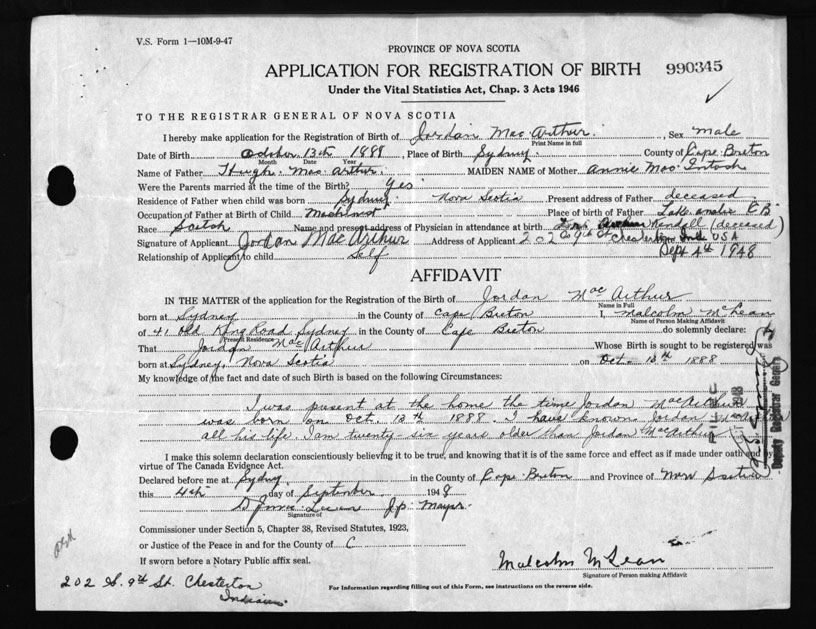 V.S. Form 1—10M-9-47
PROVINCE OF NOVA SCOTIA
APPLICATION FOR REGISTRATION OF BIRTH 990345
Under the Vital Statistics Act, Chap. 3 Acts 1946
TO THE REGISTRAR GENERAL OF NOVA SCOTIA
I hereby make application for the Registration of Birth of Jordan Mac Arthur, Sex male
Print Name in full
Date of Birth October 13th 1888, Place of Birth Sydney County of Cape Breton
Month Date Year
Name of Father Hugh Mac Arthur MAIDEN NAME of Mother Annie Mac Intosh
Were the Parents married at the time of the Birth? Yes
Residence of Father when child was born Sydney Nova Scotia Present address of Father deceased
Occupation of Father at Birth of Child Machinist Place of birth of Father Lake CB
Race Scotch Name and present address of Physician in attendance at birth Kendal (deceased)
Signature of Applicant Jordan MacArthur Address of Applicant 202 So 9th St Chesterton Ind. USA
Relationship of Applicant to child Self Sept 4th 1948
AFFIDAVIT
IN THE MATTER of the application for the Registration of the Birth of Jordan Mac Arthur
Name in Full
born at Sydney in the County of Cape Breton I, Malcolm McLean
Name of Person Making Affidavit
of 41 Old King Road Sydney in the County of Cape Breton do solemnly declare:
Present Residence
That Jordan MacArthur Whose Birth is sought to be registered was
born at Sydney, Nova Scotia on Oct. 13th 1888
My knowledge of the fact and date of such Birth is based on the following Circumstances:
I was present at the home the time Jordan MacArthur
was born on Oct. 13th 1888. I have known Jordan MacArthur
all his life. I am twenty-six years older than Jordan MacArthur
I make this solemn declaration conscientiously believing it to be true, and knowing that it is of the same force and effect as if made under oath and by
virtue of The Canada Evidence Act.
Declared before me at Sydney in the County of Cape Breton and Province of Nova Scotia
this 4th day of September 1948
J.P. Mayor
Signature of
Commissioner under Section 5, Chapter 38, Revised Statutes, 1923,
or Justice of the Peace in and for the County of C
If sworn before a Notary Public affix seal.
Malcolm McLean
Signature of Person making Affidavit
202 S. 9th St. Chesterton
Indiana
For Information regarding filling out of this Form, see instructions on the reverse side.
Deputy Registrar General